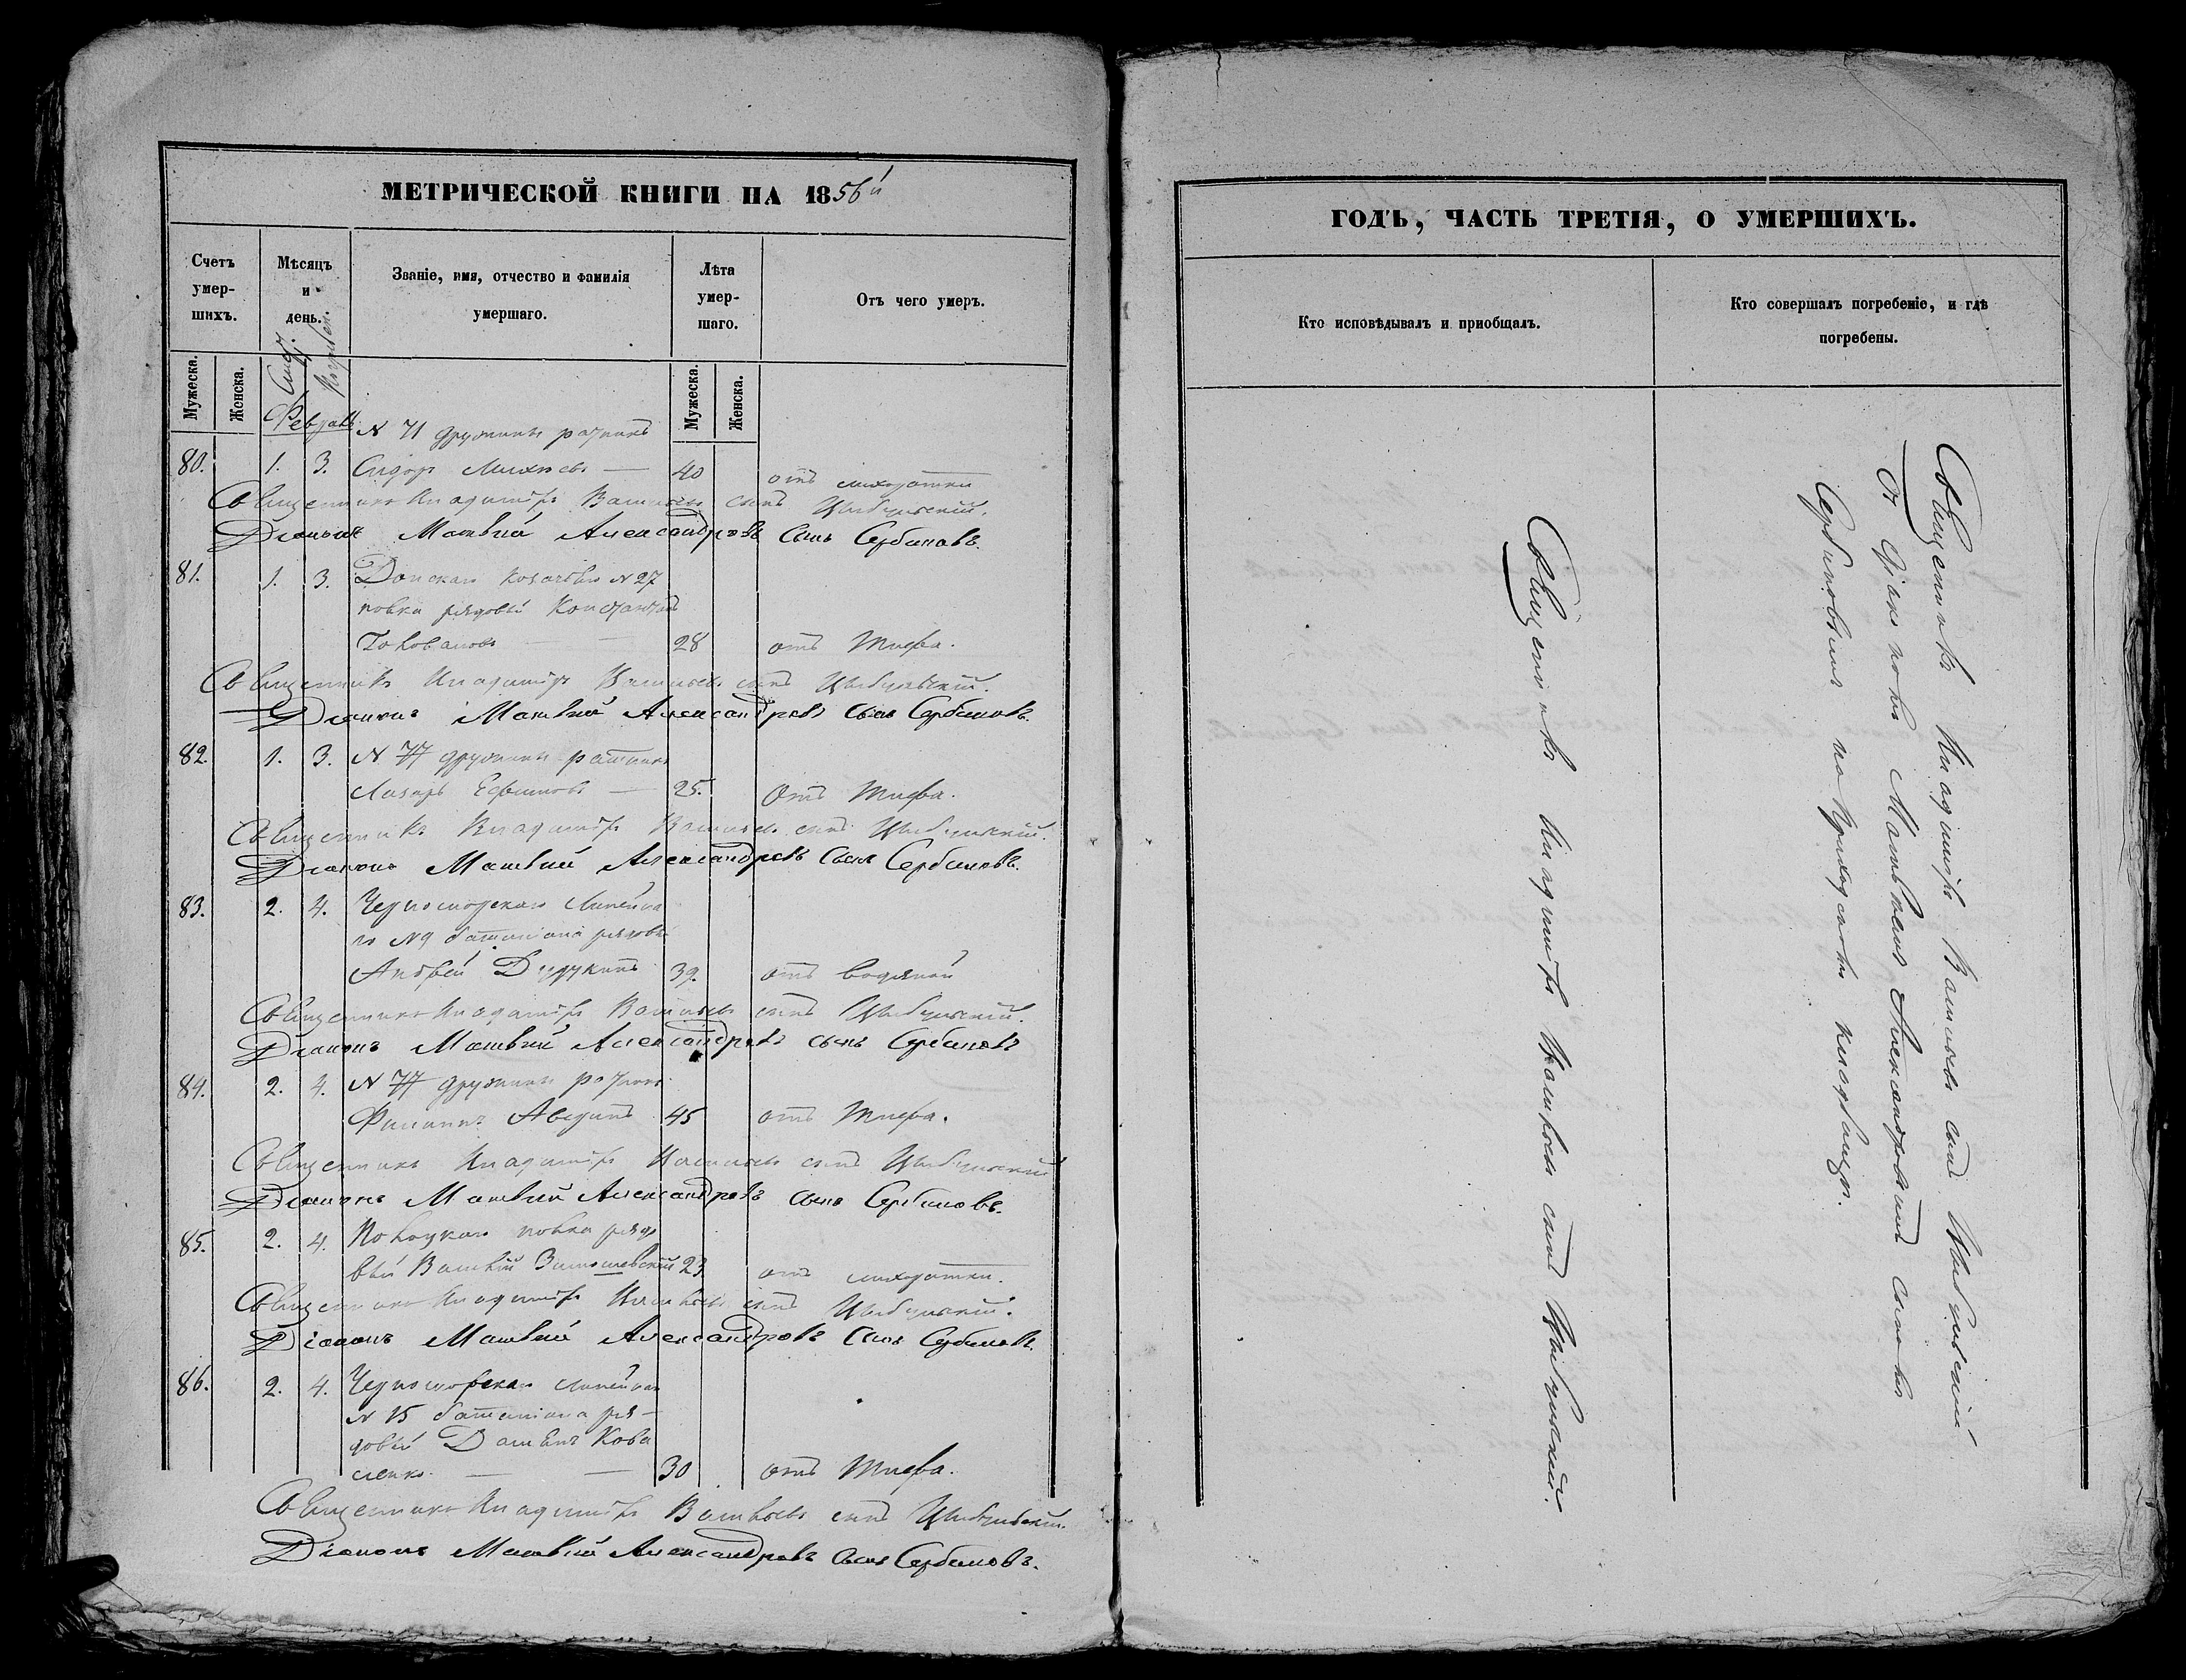 МЕТРИЧЕСКОЙ КНИГИ НА 1856й
Счетъ умер-шихъ.
Мѣсяцъ и день.
Званіе, имя, отчество и фамилія умершаго.
Лѣта умер-шаго.
Отъ чего умеръ.
Мужеска.
Женска.
Мужеска.
Женска.
Февраль
N 71 дружины ратникъ
80. 1. 3. Сидоръ Михѣевъ — 40 отъ лихорадки
Священникъ Владиміръ Васильевъ сынъ Цыбульскій.
Діаконъ Матвѣй Александровъ сынъ Сербиновъ.
81. 1. 3. Донскаго козачьяго N 27
полка рядовый Константинъ
28 отъ тифа.
Священникъ Владиміръ Васильевъ сынъ Цыбульскій.
Діаконъ Матвѣй Александровъ сынъ Сербиновъ.
82. 1. 3. N 77 дружины ратникъ
Лазарь Ефимовъ — 25. Отъ тифа.
Священникъ Владиміръ Васильевъ сынъ Цыбульскій.
Діаконъ Матвѣй Александровъ сынъ Сербиновъ.
83. 2. 4. Черноморскаго Линейна
го N 9 баталіона рядовый
Андрей 39. отъ водяной
Священникъ Владиміръ Васильевъ сынъ Цыбульскій.
Діаконъ Матвѣй Александровъ сынъ Сербиновъ
84. 2. 4. N 77 дружины ратникъ
Филиппъ 45 отъ тифа.
Священникъ Владиміръ Васильевъ сынъ Цыбульскій
Діаконъ Матвѣй Александровъ сынъ Сербиновъ.
85. 2. 4. Полоцкаго полка рядо
вый Василій 23 отъ лихорадки.
Священникъ Владиміръ Васильевъ сынъ Цыбульскій.
Діаконъ Матвѣй Александровъ сынъ Сербиновъ.
86. 2. 4. Черноморскаго Линейнаго
N 15 баталіона ря-
довый Кова
ленко. — — 30 отъ тифа.
Священникъ Владиміръ Васильевъ сынъ Цыбульскій.
Діаконъ Матвѣй Александровъ сынъ Сербиновъ.
ГОДЪ, ЧАСТЬ ТРЕТІЯ, О УМЕРШИХЪ.
Кто исповѣдывалъ и пріобщалъ.
Кто совершалъ погребеніе, и гдѣ погребены.
Священникъ Владиміръ Васильевъ сынъ Цыбульскій.
Священникъ Владиміръ Васильевъ сынъ Цыбульскій
съ Діакономъ Матвѣемъ Александровымъ сыномъ
Сербиновымъ на Приходскомъ кладбищѣ.